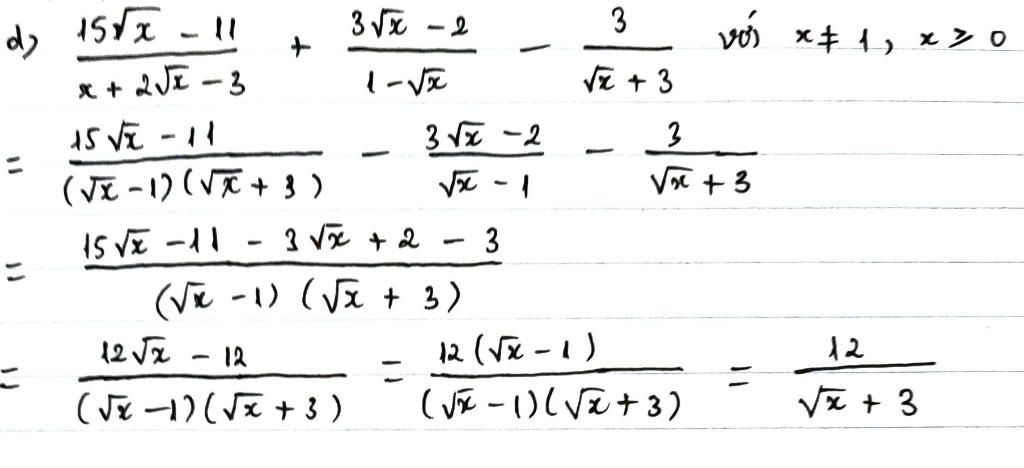 d) \frac{15\sqrt{x} - 11}{x + 2\sqrt{x} - 3} + \frac{3\sqrt{x} - 2}{1 - \sqrt{x}} - \frac{3}{\sqrt{x} + 3} với x ≠ 1, x ≥ 0
= \frac{15\sqrt{x} - 11}{(\sqrt{x} - 1)(\sqrt{x} + 3)} - \frac{3\sqrt{x} - 2}{\sqrt{x} - 1} - \frac{3}{\sqrt{x} + 3}
= \frac{15\sqrt{x} - 11 - 3\sqrt{x} + 2 - 3}{(\sqrt{x} - 1)(\sqrt{x} + 3)}
= \frac{12\sqrt{x} - 12}{(\sqrt{x} - 1)(\sqrt{x} + 3)} = \frac{12(\sqrt{x} - 1)}{(\sqrt{x} - 1)(\sqrt{x} + 3)} = \frac{12}{\sqrt{x} + 3}